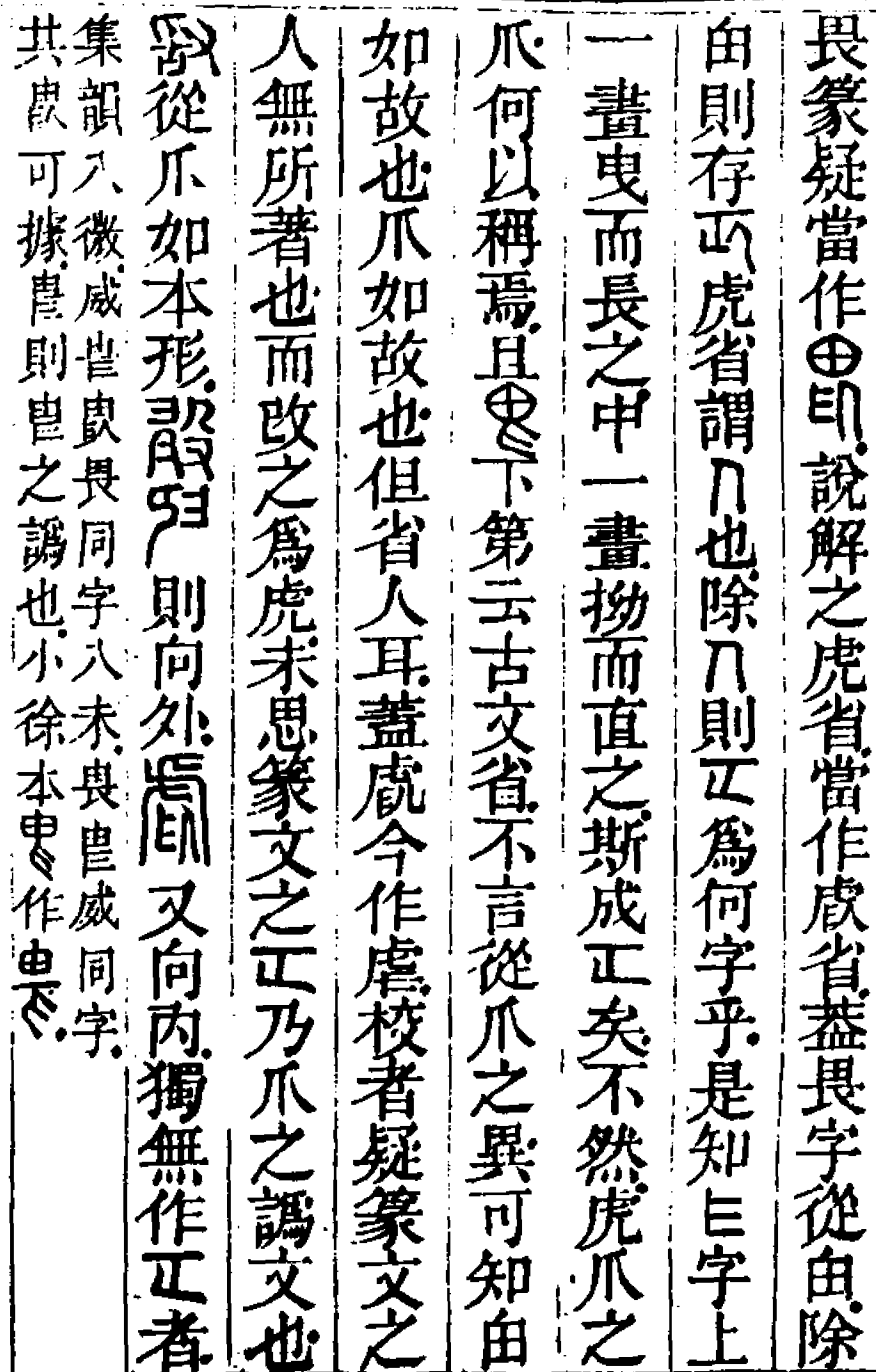 畏篆疑當作𤰲說解之虎省當作虐省葢畏字從甶除
甶則存虎省謂人也除人則為何字乎是知字上
一畫曳而長之中一畫拗而直之斯成矣不然虎爪之
爪何以稱焉且下第云古文省不言從爪之異可知甶
如故也爪如故也但省人耳蓋虐今作虐校者疑篆文之
人無所著也而改之為虎未思篆文之乃爪之譌文也
從爪如本形則向外又向内獨無作者
集韻入微威畏同字入未畏威同字
共可據則之譌也小徐本作